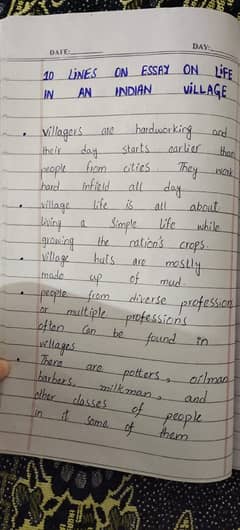 DATE:
DAY:
10 LINES ON ESSAY ON LIFE
IN AN INDIAN VILLAGE
villagers are hardworking and
their day starts earlier than
people from cities They work
hard infield all day
village life is all about
living a simple life while
growing the nation's crops.
village huts are mostly
made up of mud.
people from diverse profession
or multiple professions
often can be found in
villages
There are potters, oilman
barbers, milkman, and
other classes of people
in it some of them